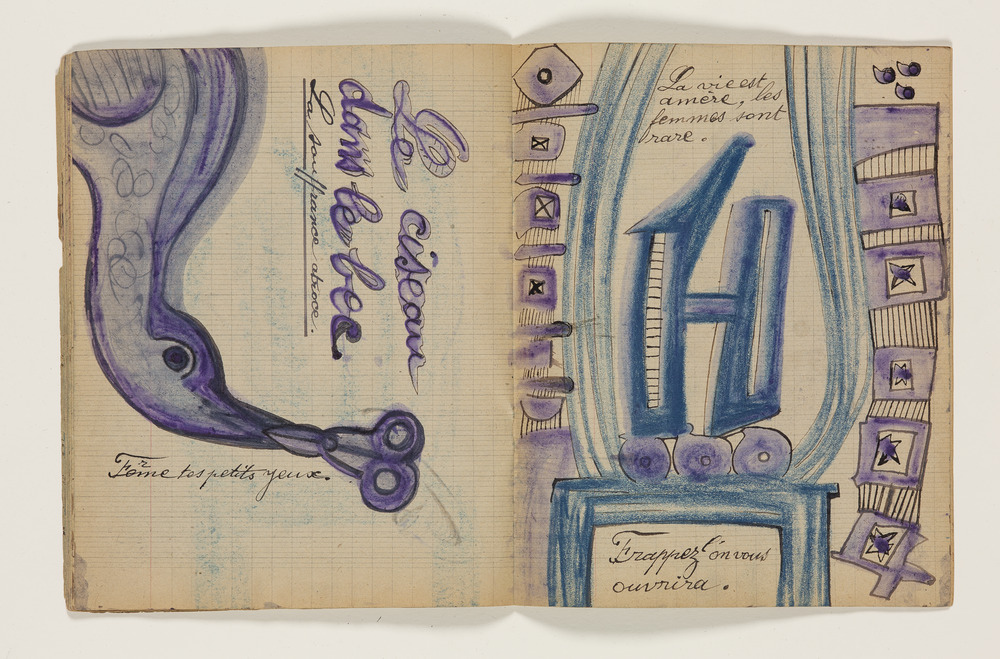 Le ciseau
dans le bec
La souffrance atroce.
Ferme tes petits yeux.
La vie est
amère, les
femmes sont
rare.
Frappez l'on vous
ouvrira.